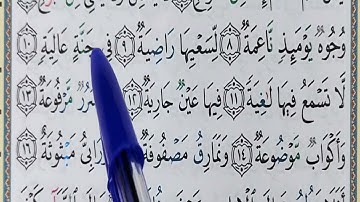 وُجُوهٌ يَوْمَئِذٍ نَّاعِمَةٌ ﴿٨﴾ لِّسَعْيِهَا رَاضِيَةٌ ﴿٩﴾ فِي جَنَّةٍ عَالِيَةٍ ﴿١٠﴾
لَّا تَسْمَعُ فِيهَا لَاغِيَةً ﴿١١﴾ فِيهَا عَيْنٌ جَارِيَةٌ ﴿١٢﴾ سُرُرٌ مَّرْفُوعَةٌ ﴿١٣﴾
وَأَكْوَابٌ مَّوْضُوعَةٌ ﴿١٤﴾ وَنَمَارِقُ مَصْفُوفَةٌ وَزَرَابِيُّ مَبْثُوثَةٌ ﴿١٦﴾